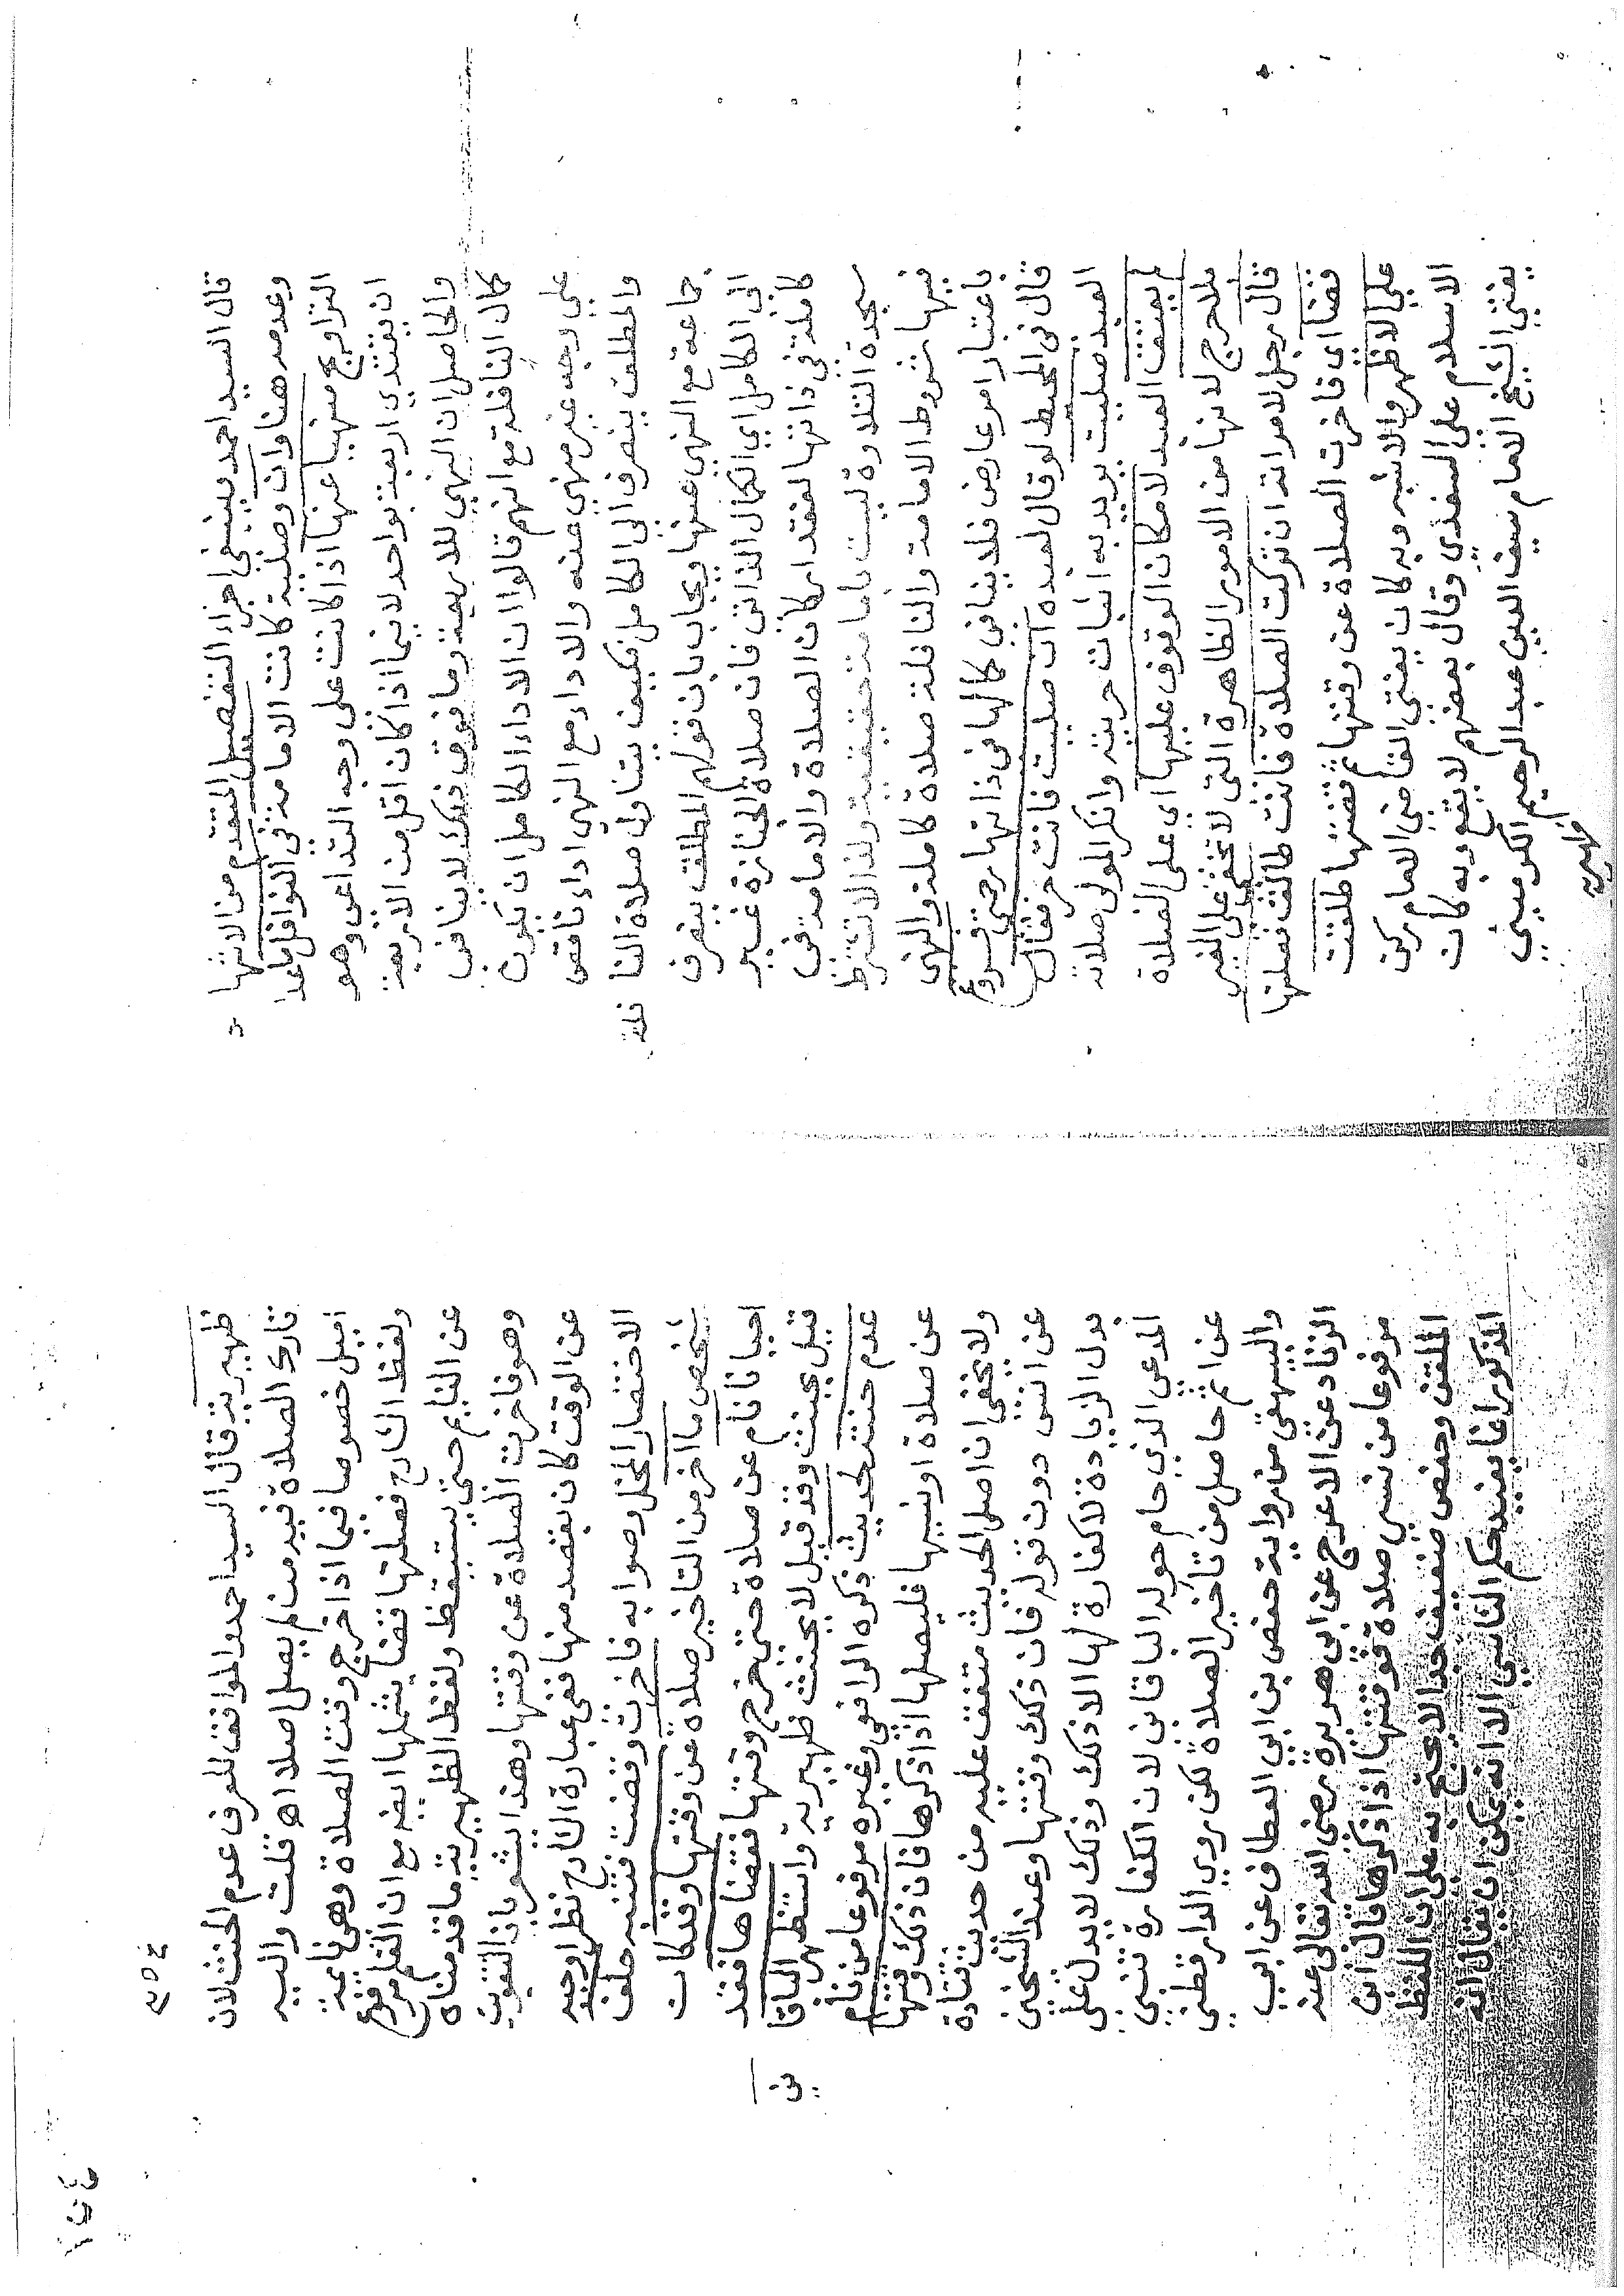 قال السيد احمد ينبغى اجراء التفصيل المتقدم من الاثها
وعدمه هنا وان وصلية كانت الامامة فى النوافل ما عدا
التراويح منهيا عنها اذا كانت على وجه التداعى وهو
ان يقتدى اربعة بواحد لا فيما اذا كان اقل من الاربعة
والحاصل ان النهى للاربعة وما فوق ذلك لا ينافى
كمال النافلة مع انهم قالوا ان الاداء الكامل ان يكون
على وجه غير منهى عنه والاداء مع النهى اداء ناقص
والمطلق ينصرف الى الكامل فكيف يتناول صلاة النا
فلة
جماعة مع النهى عنها ويجاب بان قولهم المطلق ينصرف
الى الكامل اى الكمال الذاتى فان صلاة الجنازة غير
كاملة فى ذاتها لفقد اركان الصلاة والامامة فى
سجدة التلاوة ليست بامامة حقيقية ولذا لا تشترط
فيها شروط الامامة والنافلة صلاة كاملة والنهى
باعتبار امر عارض فلا ينافى كمالها فى ذاتها رحمتى فروع
قال فى المحيط لو قال لعبده ان صليت فانت حر فقال
العبد صليت يريد به اثبات حريته وانكر المولى صلاته
لم يعتق العبد لامكان الوقوف عليها اى على الصلاة
بلا حرج لانها من الامور الظاهرة التى لا تخفى على الغير
قال رجل لامراته ان تركت الصلاة فانت طالق فصلتها
قضا اى فاخرت الصلاة عن وقتها ثم قضتها طلقت
على الاظهر والاشبه وبه كان يفتى القاضى الامام ركن
الاسلام على السغدى وقال بعضهم لا يقع وبه كان
يفتى الشيخ الامام سيف الدين عبد الرحيم الكرمينى
ظهيرية
٣٥٤
ظهيرية قال السيد احمد والموافق للعرف عدم الحنث لان
تارك الصلاة فيه من لم يصل اصلا اه قلت واليه
اميل خصوصا فيما اذا خرج وقت الصلاة وهى نايمة
ولفظ الشارح فصلتها قضا يشملها ايضا مع ان القلم مرفوع
عن النايم حتى يستيقظ ولفظ الظهيرية ما قدمناه
وهو فاخرت الصلاة عن وقتها وهذا يشعر بان التفويت
عن الوقت كان بقصد منها ففى عبارة الشارح نظر اوجبه
الاختصار المخل وصوابه فاخرت وقضت فتنبه حلف
شخص ما اخر من التاخير صلاة عن وقتها وقد كان
احيانا نام عن صلاة حتى خرج وقتها فقضاها فقد
قيل يحنث وقد قيل لا يحنث ظهيرية واستظهر الباقا
نى
عدم حنثه لحديث ذكره الرافعى وغيره مرفوعا من نام
عن صلاة او نسيها فليصلها اذا ذكرها فان ذلك وقتها
ولا يخفى ان اصل الحديث متفق عليه من حديث قتادة
عن انس دون قوله فان ذلك وقتها وعند الشيخين
بدل الزيادة لا كفارة لها الا ذلك وذلك لا يدل على
المدعى الذى حام حوله الباقانى لان الكفارة تنبى
عن اثم حاصل من تاخير الصلاة لكن روى الدارقطنى
والبيهقى من رواية حفص بن ابى العطاف عن ابى
الزناد عن الاعرج عن ابى هريرة رضى الله تعالى عنه
مرفوعا من نسى صلاة فوقتها اذا ذكرها قال ابن
الملقن وحفص ضعيف جدا لا يحتج به على ان اللفظ
المذكور انما يفيد حكم الناسى الا انه يمكن ان يقال انه